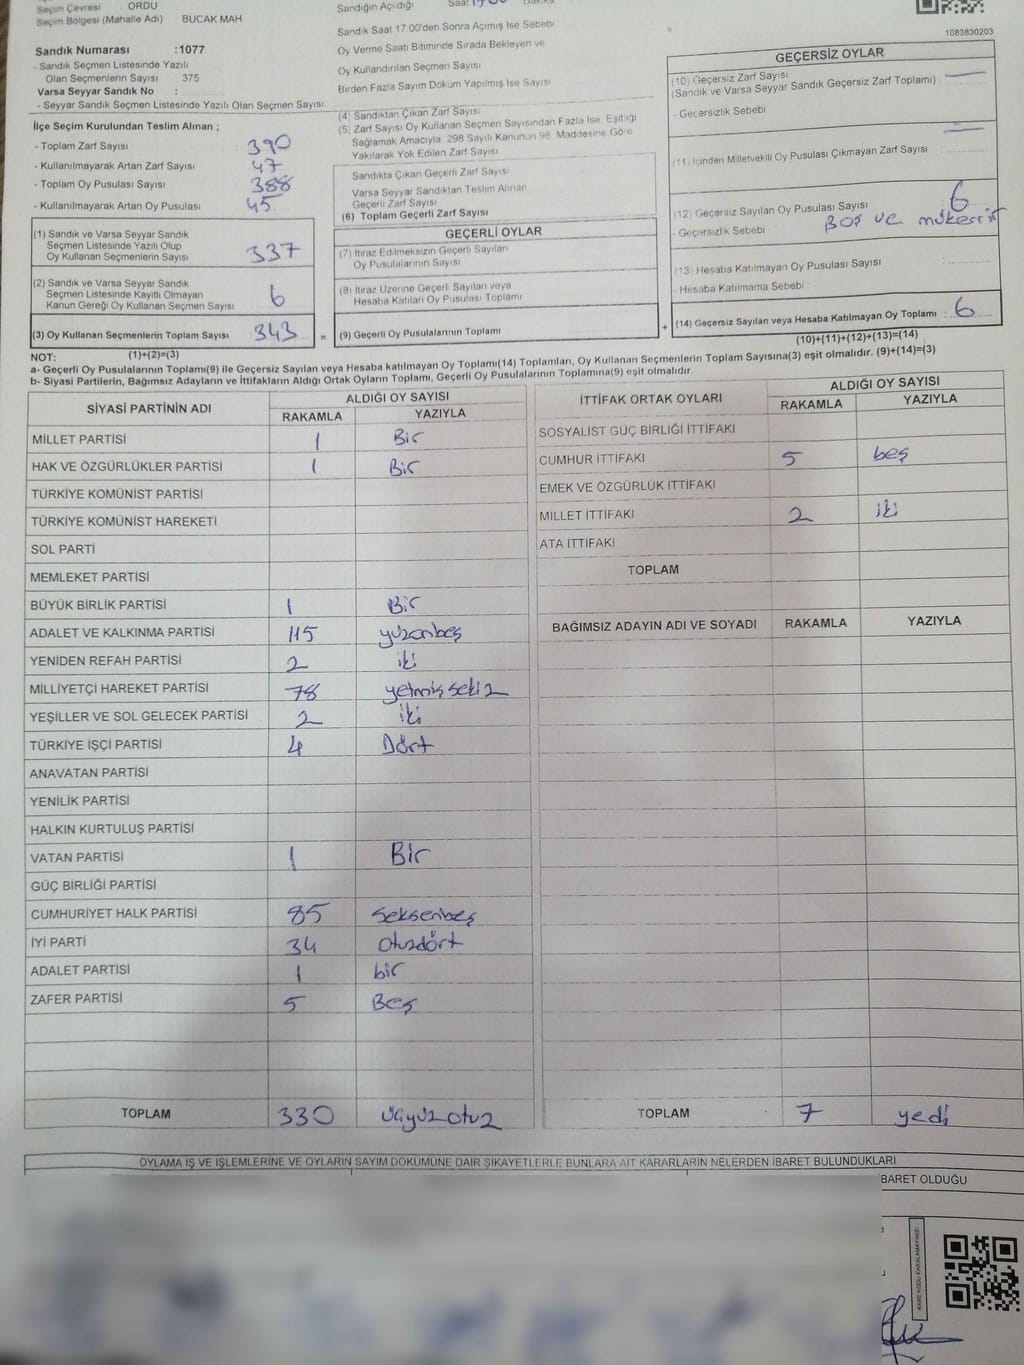 Seçim Çevresi ORDU
Seçim Bölgesi (Mahalle Adı) BUCAK MAH
Sandık Numarası :1077
- Sandık Seçmen Listesinde Yazılı
Olan Seçmenlerin Sayısı : 375
Varsa Seyyar Sandık No :
- Seyyar Sandık Seçmen Listesinde Yazılı Olan Seçmen Sayısı:
İlçe Seçim Kurulundan Teslim Alınan ;
- Toplam Zarf Sayısı 390
- Kullanılmayarak Artan Zarf Sayısı 47
- Toplam Oy Pusulası Sayısı 388
- Kullanılmayarak Artan Oy Pusulası 45
(1) Sandık ve Varsa Seyyar Sandık
Seçmen Listesinde Yazılı Olup
Oy Kullanan Seçmenlerin Sayısı 337
(2) Sandık ve Varsa Seyyar Sandık
Seçmen Listesinde Kayıtlı Olmayan
Kanun Gereği Oy Kullanan Seçmen Sayısı 6
(3) Oy Kullanan Seçmenlerin Toplam Sayısı 343 =
Sandığın Açıldığı Saat
Sandık Saat 17:00'den Sonra Açılmış İse Sebebi
Oy Verme Saati Bitiminde Sırada Bekleyen ve
Oy Kullandırılan Seçmen Sayısı
Birden Fazla Sayım Döküm Yapılmış İse Sayısı
(4) Sandıktan Çıkan Zarf Sayısı
(5) Zarf Sayısı Oy Kullanan Seçmen Sayısından Fazla İse, Eşitliği
Sağlamak Amacıyla, 298 Sayılı Kanunun 98. Maddesine Göre
Yakılarak Yok Edilen Zarf Sayısı
Sandıkta Çıkan Geçerli Zarf Sayısı
Varsa Seyyar Sandıktan Teslim Alınan
Geçerli Zarf Sayısı
(6) Toplam Geçerli Zarf Sayısı
GEÇERLİ OYLAR
(7) İtiraz Edilmeksizin Geçerli Sayılan
Oy Pusulalarının Sayısı
(8) İtiraz Üzerine Geçerli Sayılan veya
Hesaba Katılan Oy Pusulası Toplamı
(9) Geçerli Oy Pusulalarının Toplamı +
1083830203
GEÇERSİZ OYLAR
(10) Geçersiz Zarf Sayısı
(Sandık ve Varsa Seyyar Sandık Geçersiz Zarf Toplamı) :
- Geçersizlik Sebebi
(11) İçinden Milletvekili Oy Pusulası Çıkmayan Zarf Sayısı :
(12) Geçersiz Sayılan Oy Pusulası Sayısı : 6
- Geçersizlik Sebebi Boş ve mükerrir
(13) Hesaba Katılmayan Oy Pusulası Sayısı :
- Hesaba Katılmama Sebebi :
(14) Geçersiz Sayılan veya Hesaba Katılmayan Oy Toplamı : 6
NOT: (1)+(2)=(3) (10)+(11)+(12)+(13)=(14)
a- Geçerli Oy Pusulalarının Toplamı(9) ile Geçersiz Sayılan veya Hesaba katılmayan Oy Toplamı(14) Toplamları, Oy Kullanan Seçmenlerin Toplam Sayısına(3) eşit olmalıdır. (9)+(14)=(3)
b- Siyasi Partilerin, Bağımsız Adayların ve İttifakların Aldığı Ortak Oyların Toplamı, Geçerli Oy Pusulalarının Toplamına(9) eşit olmalıdır.
SİYASİ PARTİNİN ADI ALDIĞI OY SAYISI
RAKAMLA YAZIYLA
MİLLET PARTİSİ 1 Bir
HAK VE ÖZGÜRLÜKLER PARTİSİ 1 Bir
TÜRKİYE KOMÜNİST PARTİSİ
TÜRKİYE KOMÜNİST HAREKETİ
SOL PARTİ
MEMLEKET PARTİSİ
BÜYÜK BİRLİK PARTİSİ 1 Bir
ADALET VE KALKINMA PARTİSİ 115 yüzonbeş
YENİDEN REFAH PARTİSİ 2 iki
MİLLİYETÇİ HAREKET PARTİSİ 78 yetmişsekiz
YEŞİLLER VE SOL GELECEK PARTİSİ 2 iki
TÜRKİYE İŞÇİ PARTİSİ 4 Dört
ANAVATAN PARTİSİ
YENİLİK PARTİSİ
HALKIN KURTULUŞ PARTİSİ
VATAN PARTİSİ 1 Bir
GÜÇ BİRLİĞİ PARTİSİ
CUMHURİYET HALK PARTİSİ 85 seksenbeş
İYİ PARTİ 34 otuzdört
ADALET PARTİSİ 1 bir
ZAFER PARTİSİ 5 Beş
TOPLAM 330 üçyüzotuz
İTTİFAK ORTAK OYLARI ALDIĞI OY SAYISI
RAKAMLA YAZIYLA
SOSYALİST GÜÇ BİRLİĞİ İTTİFAKI
CUMHUR İTTİFAKI 5 beş
EMEK VE ÖZGÜRLÜK İTTİFAKI
MİLLET İTTİFAKI 2 iki
ATA İTTİFAKI
TOPLAM
BAĞIMSIZ ADAYIN ADI VE SOYADI RAKAMLA YAZIYLA
TOPLAM 7 yedi
OYLAMA İŞ VE İŞLEMLERİNE VE OYLARIN SAYIM DÖKÜMÜNE DAİR ŞİKAYETLERLE BUNLARA AİT KARARLARIN NELERDEN İBARET BULUNDUKLARI
BARET OLDUĞU
KARE KODU KARALAMAYINIZ!